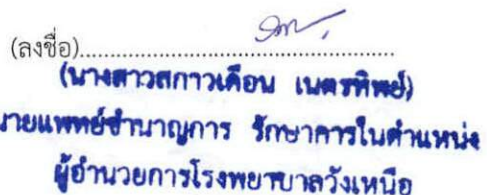 (ลงชื่อ)
(นางสาวสกาวเดือน เนตรทิพย์)
นายแพทย์ชำนาญการ รักษาการในตำแหน่ง
ผู้อำนวยการโรงพยาบาลวังเหนือ